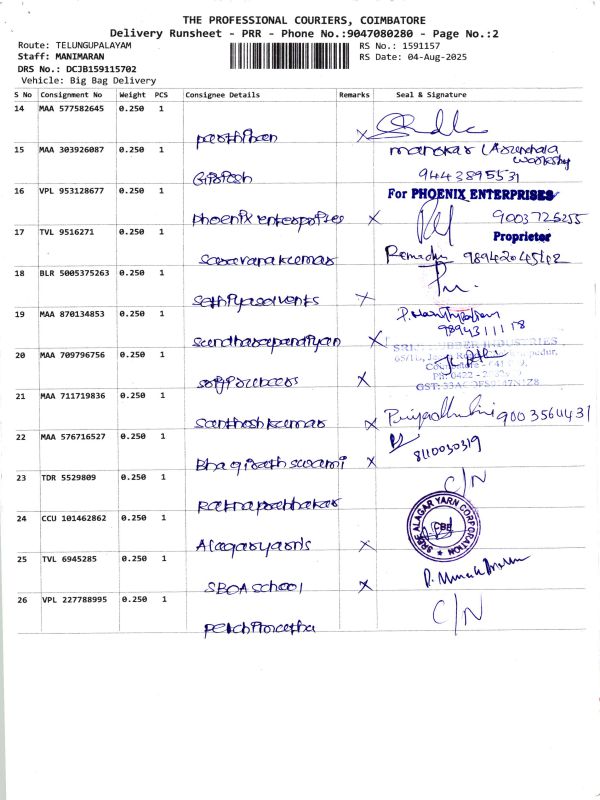 THE PROFESSIONAL COURIERS, COIMBATORE
Delivery Runsheet - PRR - Phone No.:9047080280 - Page No.:2
Route: TELUNGUPALAYAM
RS No.: 1591157
Staff: MANIMARAN
RS Date: 04-Aug-2025
DRS No.: DCJB159115702
Vehicle: Big Bag Delivery
S No Consignment No Weight PCS Consignee Details Remarks Seal & Signature
14 MAA 577582645 0.250 1
parthiban x
15 MAA 303926087 0.250 1
manohar
9443895531
16 VPL 953128677 0.250 1
For PHOENIX ENTERPRISES
phoenix enterprises x
9003726255
17 TVL 9516271 0.250 1
Proprietor
Saravanakumar
9894204542
18 BLR 5005375263 0.250 1
Sathyasolvents x
19 MAA 870134853 0.250 1
9894311118
Sundharapandiyan x
20 MAA 709796756 0.250 1
RUBBER INDUSTRIES
x
21 MAA 711719836 0.250 1
Santhosh kumar x
9003564431
22 MAA 576716527 0.250 1
8110030319
Bhagirath swami x
23 TDR 5529809 0.250 1
C/N
Ratnaprabhakar
24 CCU 101462862 0.250 1
SREE ALAGAR YARN CORPORATION
CBE
Alagaryarns x
25 TVL 6945285 0.250 1
SBOA School x
26 VPL 227788995 0.250 1
C/N